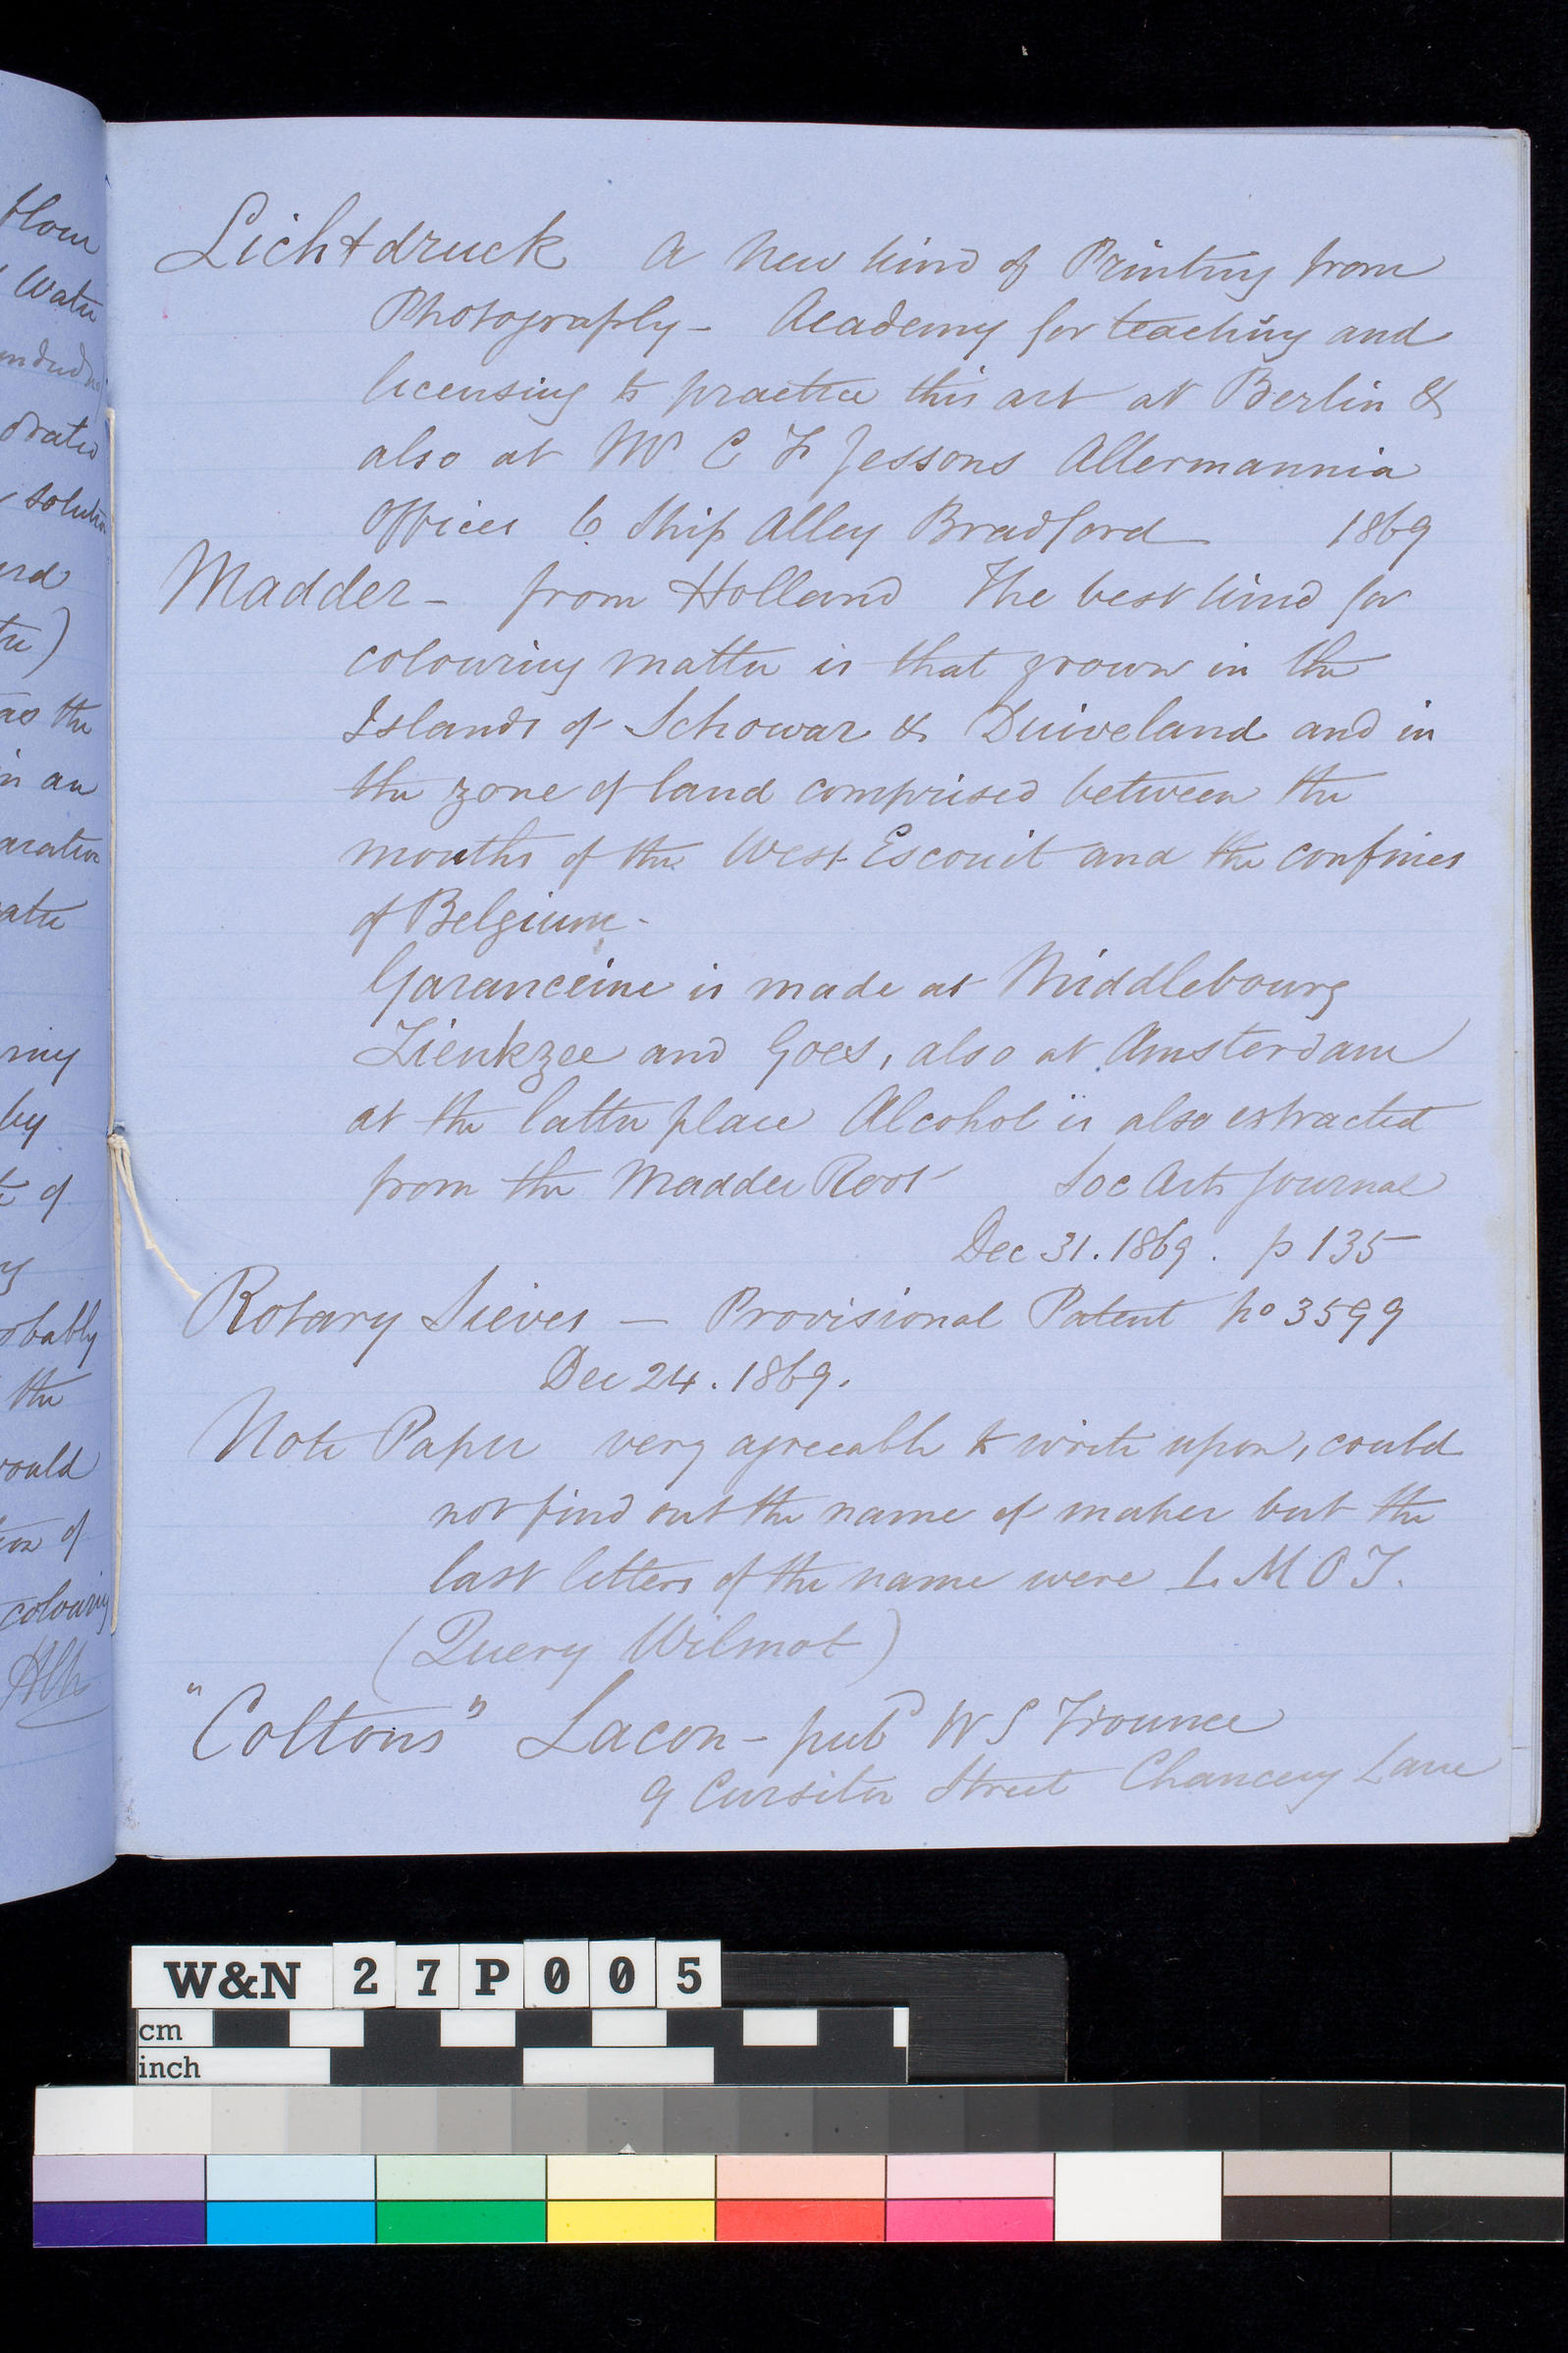 flour
Water
orated
solution
as the
in an
by
of
obably
the
would
of
colouring
Lichtdruck A New kind of Printing from
Photography - Academy for teaching and
licensing to practice this art at Berlin &
also at Mr C F Jessons Allermannia
Offices 6 Ship Alley Bradford 1869
Madder - from Holland The best kind for
colouring matter is that grown in the
Islands of Schowar & Duiveland and in
the zone of land comprised between the
mouths of the West Escouit and the confines
of Belgium -
Garanceine is made at Middlebourg
Zienkzee and Goes, also at Amsterdam
at the latter place Alcohol is also extracted
from the Madder Root Soc Arts Journal
Dec 31. 1869. p 135
Rotary Sieves — Provisional Patent No 3599
Dec 24. 1869.
Note Paper very agreeable to write upon, could
not find out the name of maker but the
last letters of the name were L M O T.
(Query Wilmot)
"Coltons" Lacon - pubd W S Trounce
9 Cursitor Street Chancery Lane
W&N 27P005
cm
inch